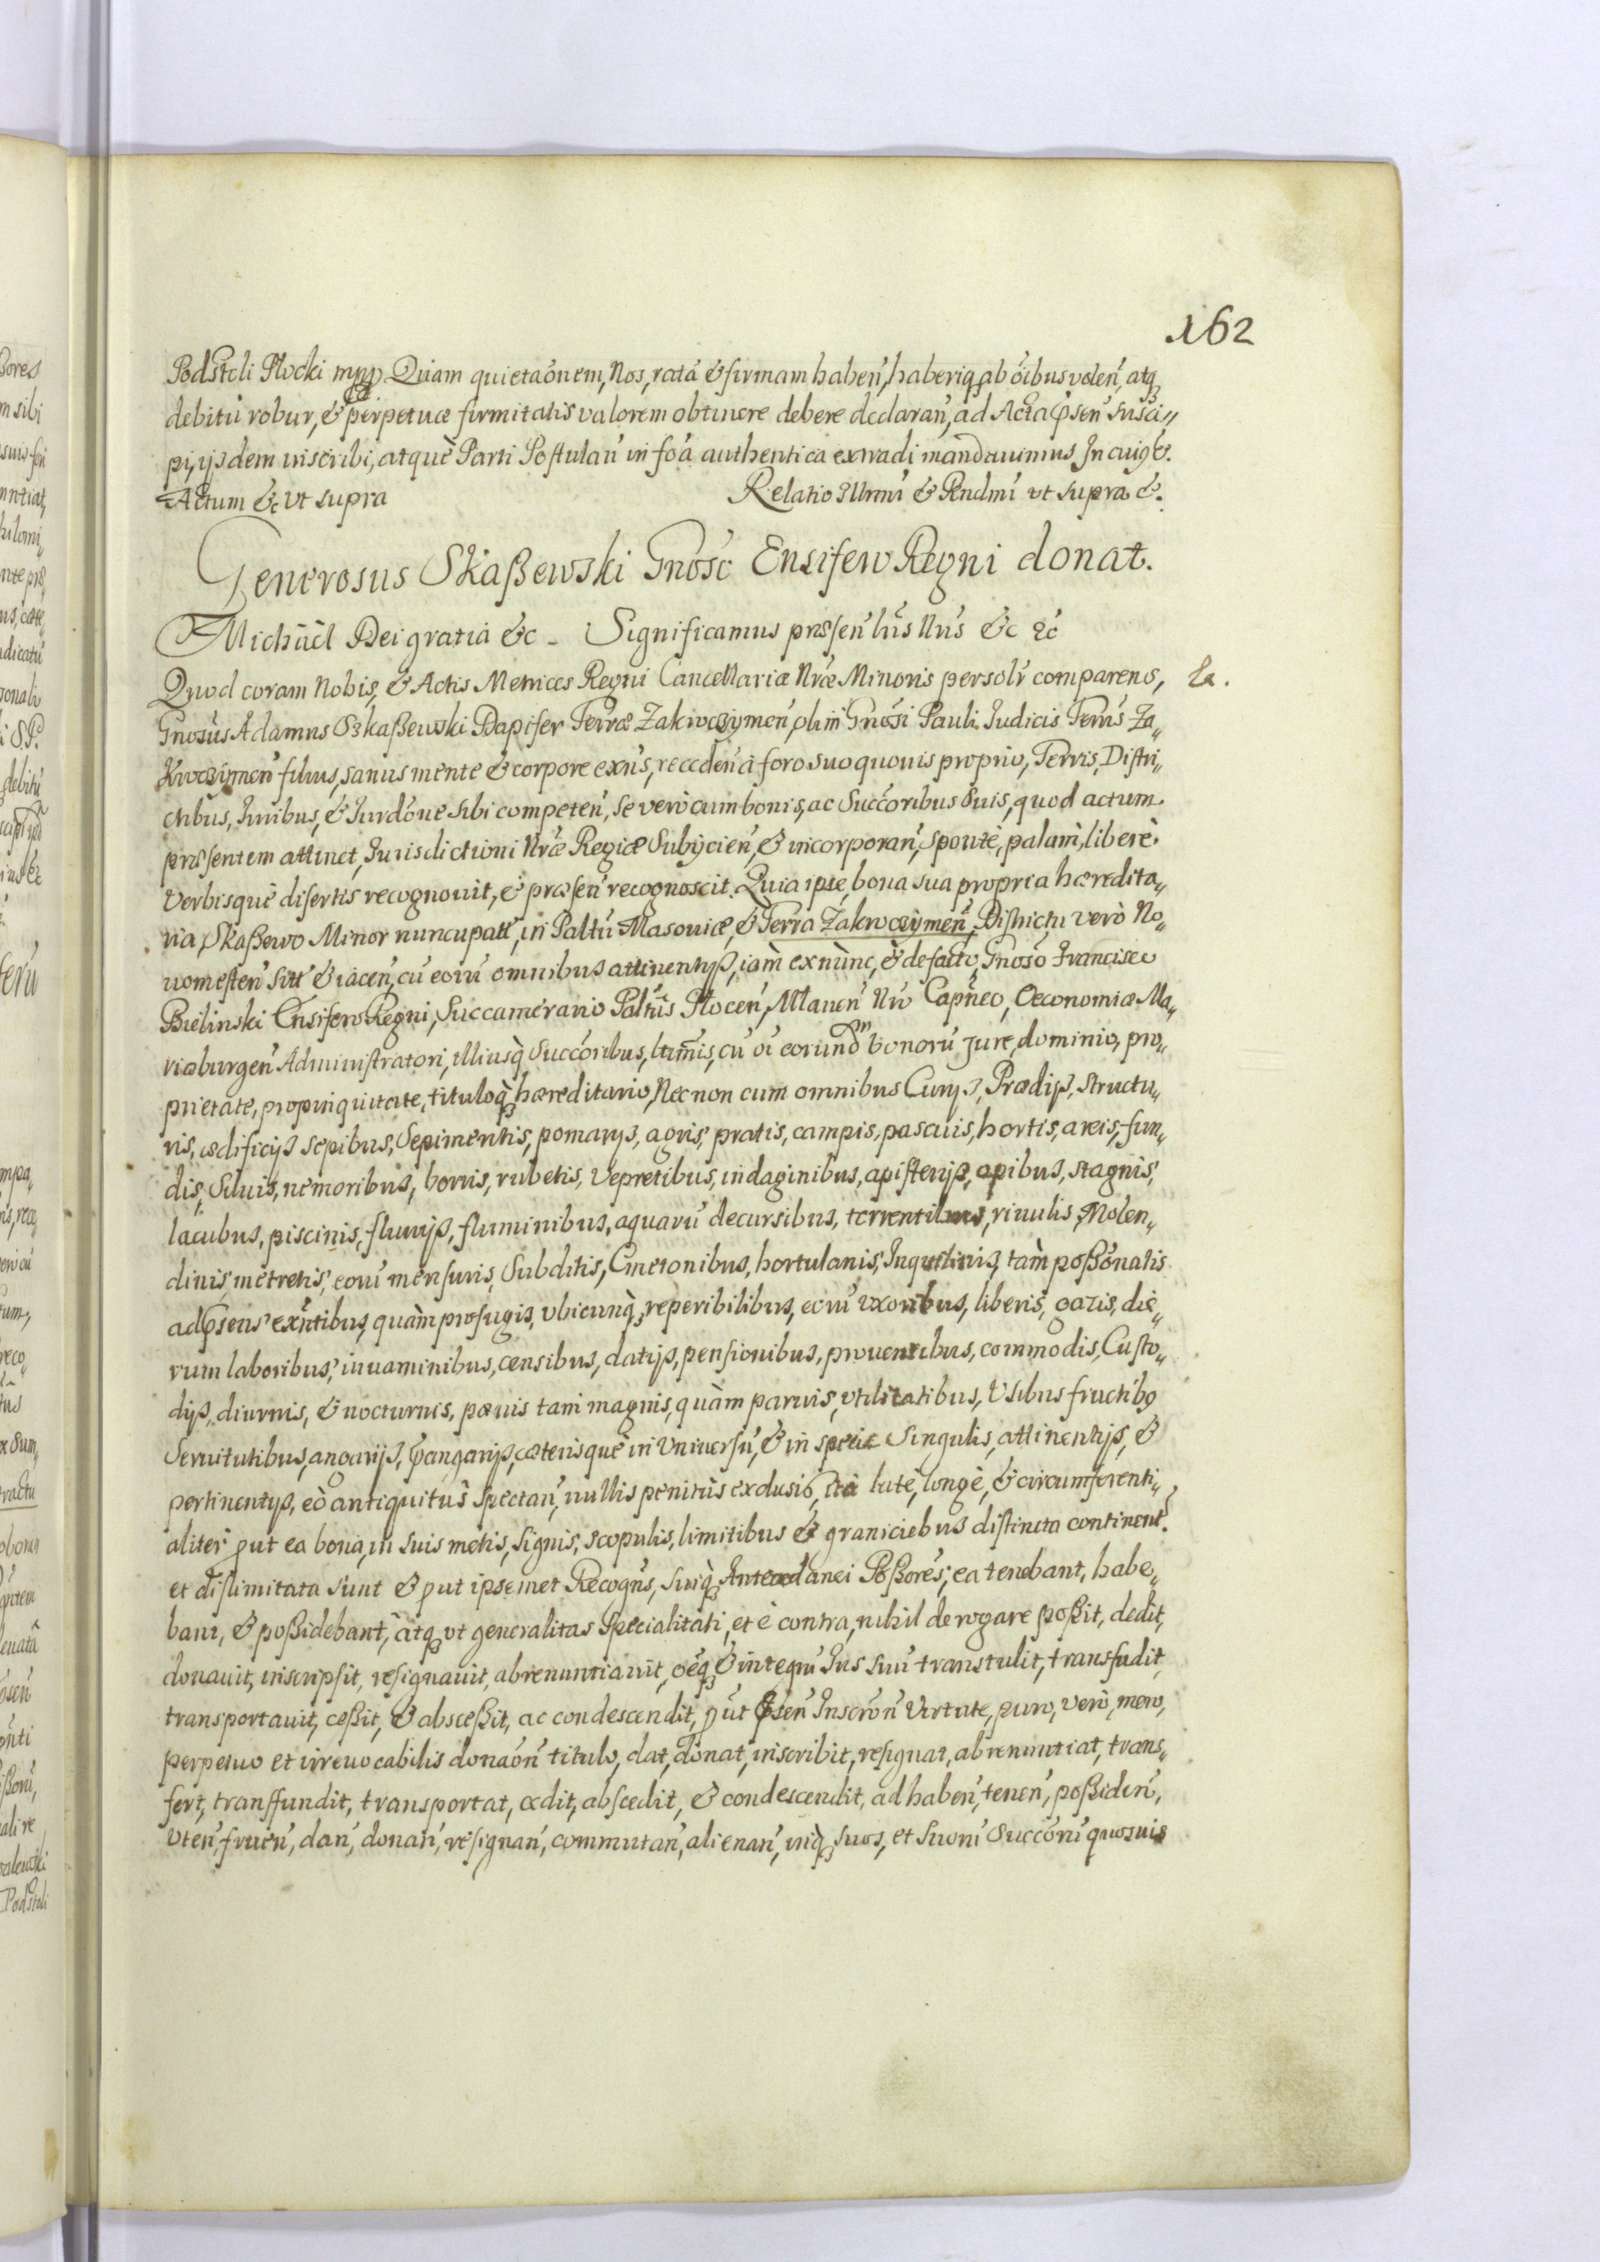 162
Podstoli Plocki mpp Quam quietaõnem, Nos, ratã & firmam haben̄, haberiq̨ ab oĩbus volen̄, atq̨
debitũ robur, & perpetuæ firmitatis valorem obtinere debere declaran̄, ad Acta p̃sen̄ susci„
pi, ijsdem inscribi, atquè Parti Postulan̄ in foã authentica extradi mandauimus In cuiq̨ &.
Actum &c vt supra
Relatio Illrmĩ & Rendmĩ vt supra &.
Generosus Skaßewski Gnoso Ensifero Regni donat.
Michaël Dei gratia &c - Significamus præsen̄ lr̃is Nr̃is &c &c
Quod coram Nobis, & Actis Metrices Regni Cancellariæ Nr̃æ Minoris persolr̃ comparens,
La.
Gnosũs Adamus Szkaßewski Dapifer Terræ Zakroczymen̄, olim Gnosĩ Pauli Judicis Terrĩs Za„
kroczymen̄ filius, sanus mente & corpore exñs, receden̄ à foro suo quouis proprio, Terris, Distri„
ctibus, Juribus, & Jurdõne sibi competen̄, se verò cum bonis, ac Succõribus suis, quod actum
præsentem attinet, Jurisdictioni Nr̃æ Regiæ Subijcien̄, & incorporan̄, sponte, palam, liberè
verbisquè disertis recognouit, & præsen̄ recognoscit. Quia ipse, bona sua propria hæredita„
ria, Skaßewo Minor nuncupatt̃, in Paltũ Masouiæ, & Terra Zakroczymen̄, Districtu verò No„
uomesten̄ sitt̃ & iacen̄, cũ eorũ omnibus attinentijs, iam exnunc, & de facto, Gnosõ Francisco
Bielinski Ensifero Regni, Succamerario Paltũs Plocen̄, Mlauen̄ Nrõ Capñeo, Oeconomiæ Ma„
riæburgen̄ Administratori, illiusq̀ Succõribus, ltimĩs, cũ oĩ eorundm̃ bonorũ jure, dominio, pro„
prietate, propinquitate, tituloq̨ hæreditario, Nec non cum omnibus Curijs, Prædijs, structu„
ris, ædificijs sepibus, Sepimentis, pomarijs, agris, pratis, campis, pascuis, hortis, areis, fun„
dis, Siluis, nemoribus, borris, rubetis, Vepretibus, indaginibus, apisterijs, apibus, stagnis,
lacubus, piscinis, fluuijs, fluminibus, aquarũ decursibus, torrentibus, riuulis, Molen„
dinis, metretis, eorũ mensuris, Subditis, Cmetonibus, hortulanis, Inquilinis, tàm poßõnatis
ad p̃sens exñtibus, quàm profugis, vbicunq̨, reperibilibus, eorũ vxoribus, liberis, gazis, die„
rum laboribus, iuuaminibus, censibus, datijs, pensionibus, prouentibus, commodis, Custo„
dijs, diurnis, & nocturnis, pœnis tam magnis, quàm paruis, vtilitatibus, Vsibus fructibq̨
Seruitutibus, angarijs, p̃angarijs, cæterisquè in Vniuersũ, & in specie Singulis, attinentijs, &
pertinentijs, eò antiquitus spectan̄, nullis penitùs exclusis, ità latè, longè, & circumferenti„
aliter put ea bona, in suis metis, signis, scopulis, limitibus & graniciebus distincta continent.r
et dislimitata sunt & put ipsemet Recogñs, suiq̨ Antecedanei Poßores, ea tenebant, habe„
bant, & poßidebant, àtq̨ vt generalitas Specialitati, et è contra, nihil derogare poßit, dedit,
donauit, inscripsit, resignauit, abrenuntiauit, oẽq̨ & integrũ Jus suũ transtulit, transfudit,
transportauit, ceßit, & absceßit, ac condescendit, put p̃sen̄ Inscrõn̄ Virtute, puro, vero, mero,
perpetuo et irreuocabilis donaõn̄ titulo, dat, donat, inscribit, resignat, abrenuntiat, trans„
fert, transfundit, transportat, cedit, abscedit, & condescendit, ad haben̄, tenen̄, poßiden̄,
vten̄, fruen̄, dan̄, donan̄, resignan̄, commutan̄, alienan̄, inq̨ suos, et suorũ Succõrũ quosuis